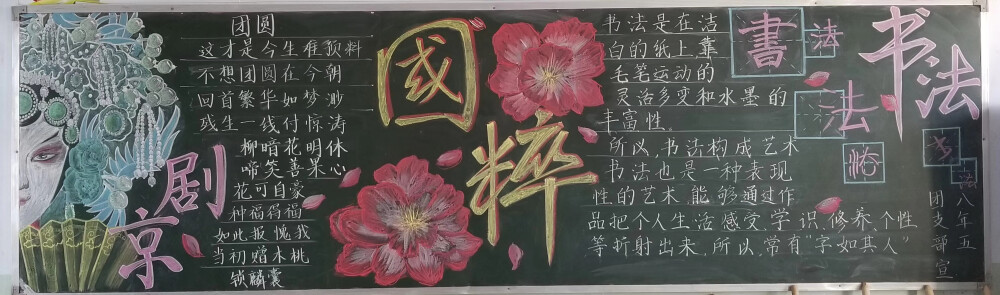 团圆
这才是今生难预料
不想团圆在今朝
回首繁华如梦渺
残生一线付惊涛
柳暗花明休
啼笑善果心
花可自豪
种福得福
如此报愧我
当初赠木桃
锁麟囊
京剧
國粹
书法是在洁
白的纸上靠
毛笔运动的
灵活多变和水墨的
丰富性.
所以,书法构成艺术
书法也是一种表现
性的艺术.能够通过作
品把个人生活感受,学识,修养,个性
等折射出来,所以,常有"字如其人"
書
法
法
书法
八年五
团支部宣